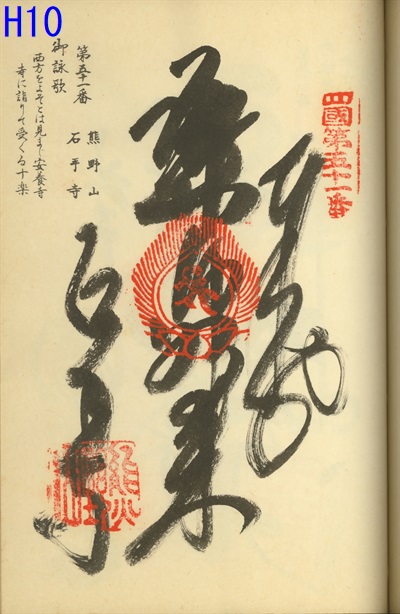 H10
四國第五十一番
薬師如来
石手寺
第五十一番
熊野山
石手寺
御詠歌
西方をよそとは見まじ安養寺
寺に詣りて受くる十楽